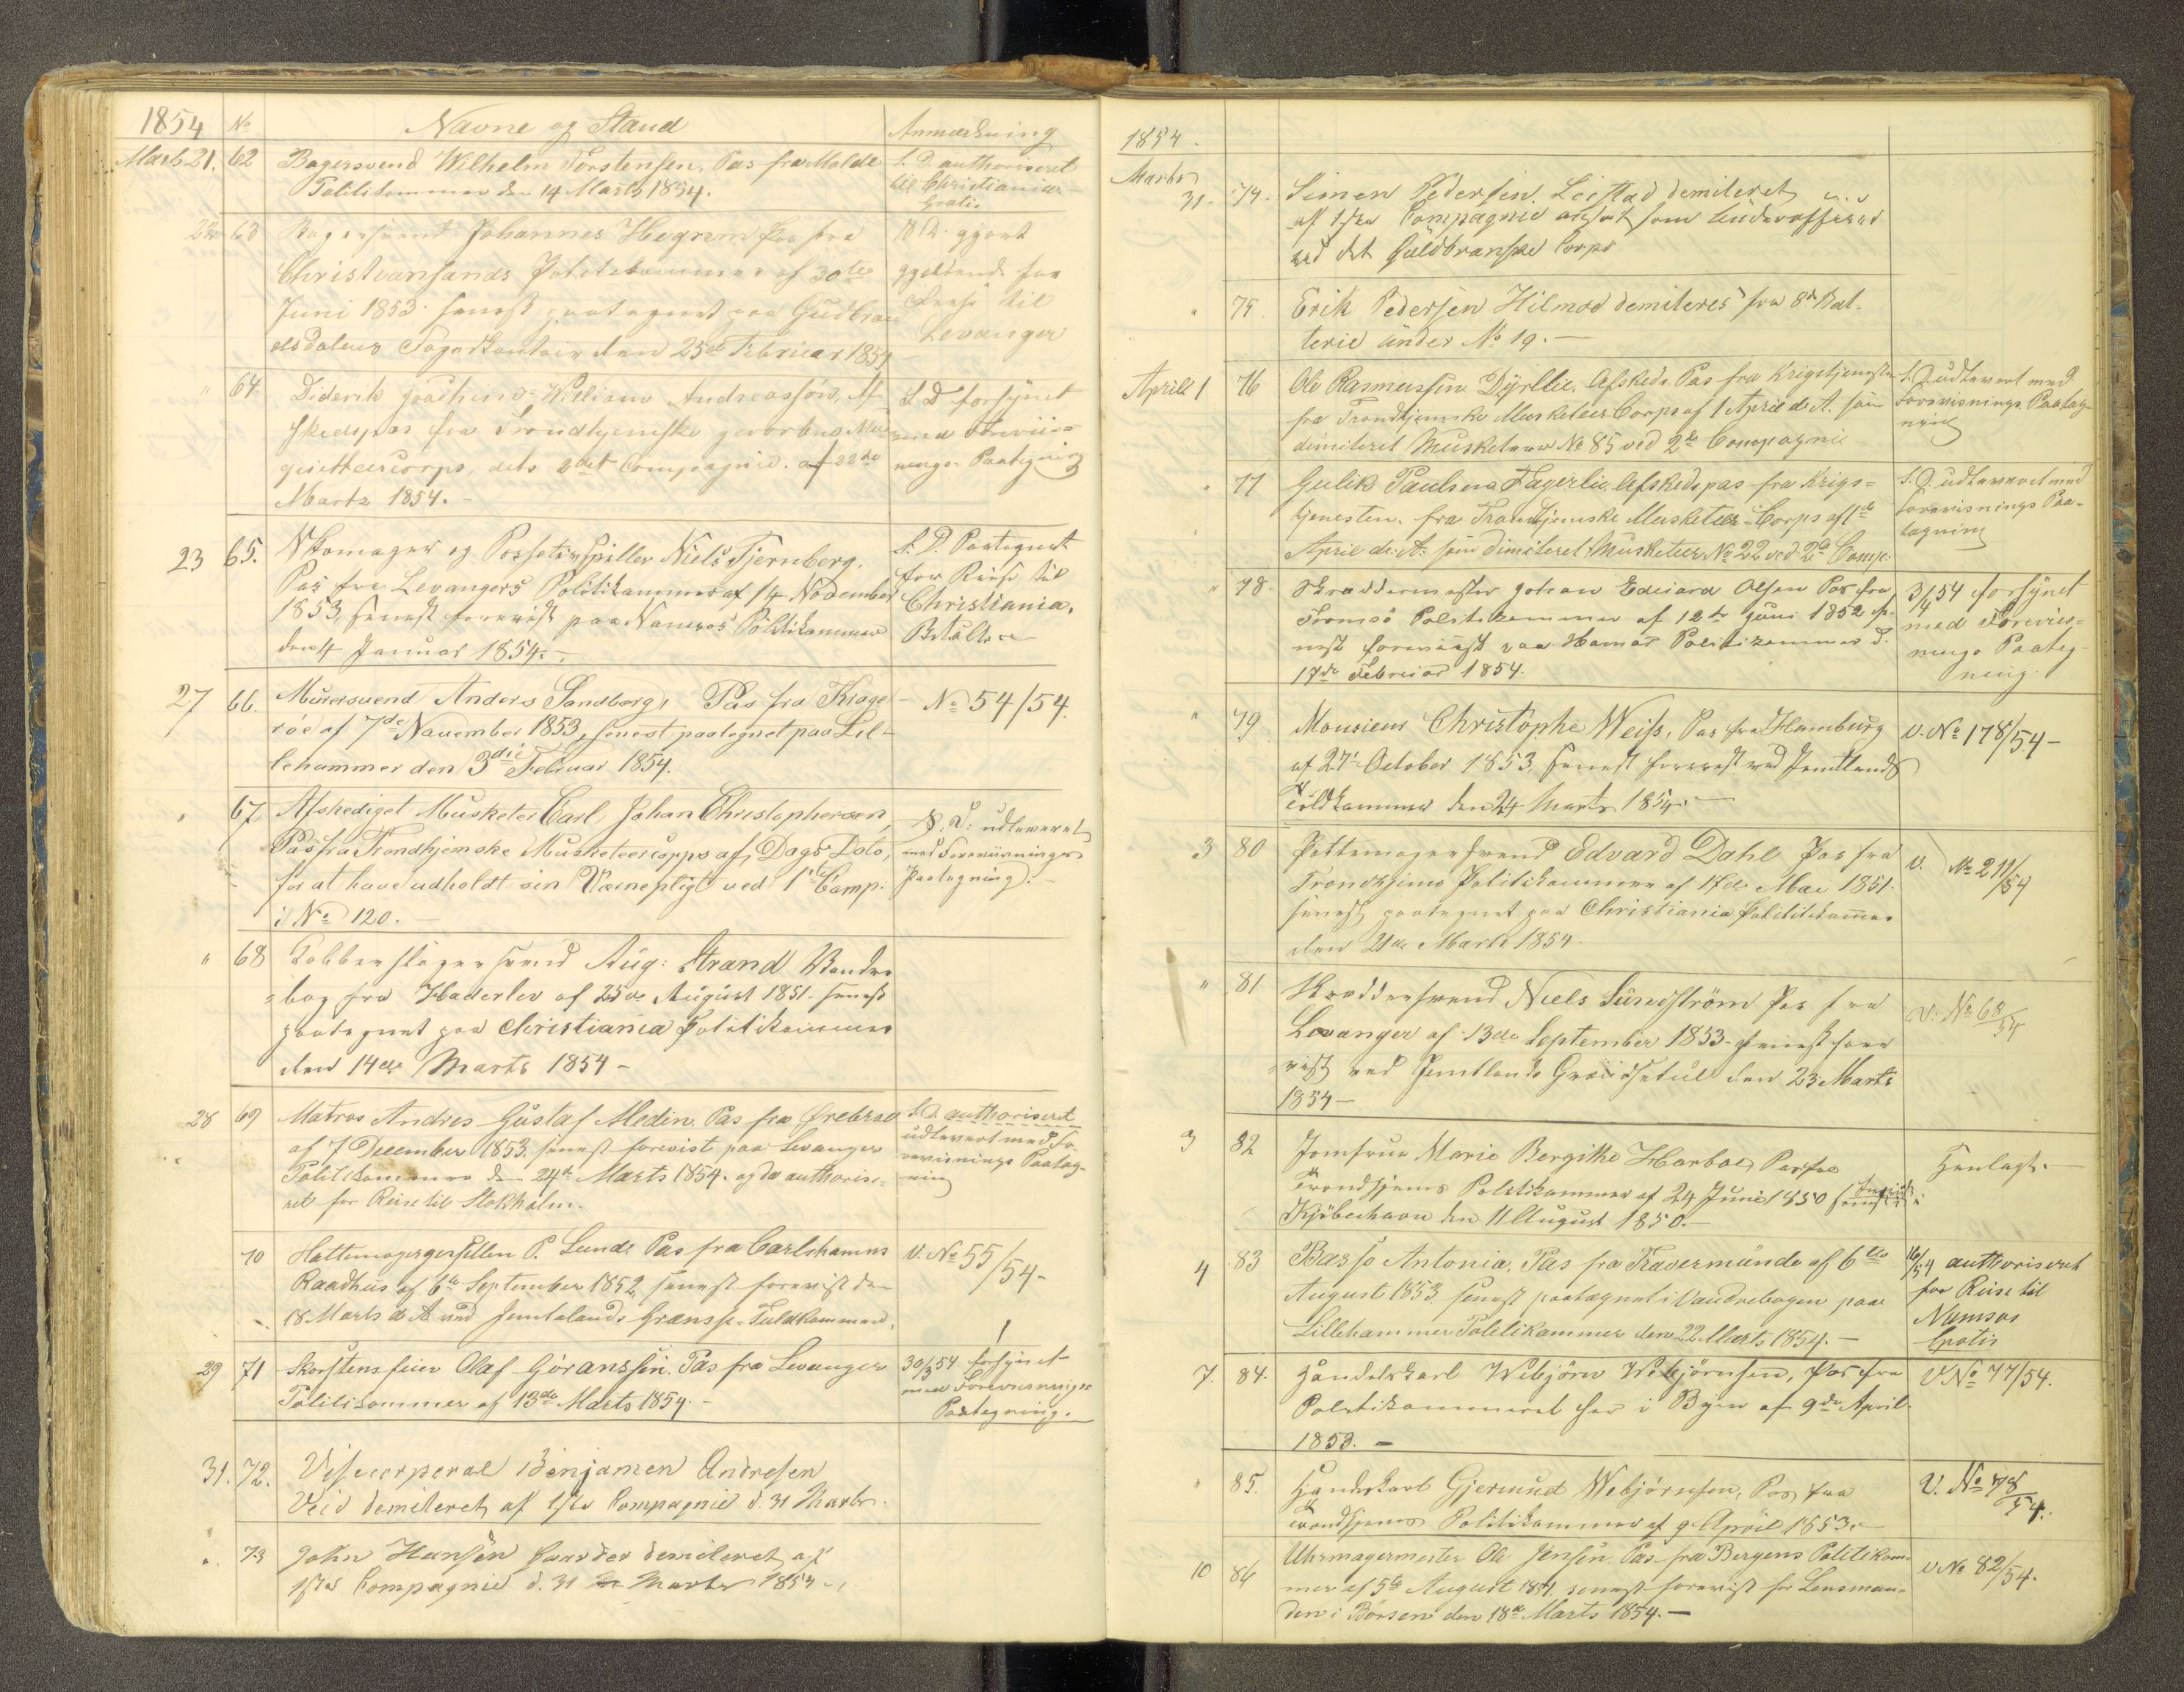 1854 No Navne og Stand Anmærkning
Marts 21. 62 Bagersvend Wilhelm Torstensen, Pas fra Molde
Politikammer den 14 Marts 1854.
S. D. authoriseret
til Christiania
Gratis
22 63 Bagersvend Johannes Hegrem Pas fra
Christiansands Politikammer af 30te
Juni 1853 senest paategnet paa Gudbran
dsdalens Fogedkontoir den 25de Februar 1854
S. D. gjort
gjeldende for
Reise til
Levanger
" 64. Diderik Joachim William Andreassen, Af
skedspas fra Trondhjemske gevorbne Mus
qvetteercorps, dets 2det Compagnie. af 22de
Marts 1854.
S D forsynet
med Foreviis-
nings Paategning
23 65. Skomager og Possetivspiller Niels Tjernberg,
Pas fra Levangers Politikammer af 14 November
1853, senest forevist paa Namsos Politikammer
den 4 Januar 1854.
S. D. Paategnet
for Reise til
Christiania.
27 66. Murersvend Anders Sandberg, Pas fra Krage
röe af 7de November 1853, senest paategnet paa Lil-
lehammer den 3die Februar 1854.
No 54/54.
" 67 Afskediget Musketer Carl Johan Christophersen,
Pas fra Trondhjemske Musketeercorps af Dags Dato,
for at have udholdt sin Værnepligt ved 1ste Comp.
No 120.
S. D. udleveret
med Foreviisnings
Paategning.
" 68 Kobberslagersvend Aug: Strand Vandre
bog fra Haderslev af 25de August 1851. senest
paategnet paa Christiania Politikammer
den 14de Marts 1854
28 69 Matros Andres Gustaf Medin. Pas fra Ørebroe
af 7 December 1853. senest forevist paa Levanger
Politikammer den 24de Marts 1854. og da authorise-
ret for Reise til Stokholm.
S. D. authoriseret
udlevert med Fo
revisnings Paateg-
ning
70 Hattemagergesellen P. Lunde Pas fra Carlshamns
Raadhus af 6te September 1852, senest forevist den
18 Marts d. A. ved Jemtelands Grænse-Toldkammer.
V. No 55/54-
29 71 Skorstensfeier Olaf Göranssen. Pas fra Levanger
Politikammer af 13de Marts 1854.
30/3 54 forsynet
med Forevisnings
Paategning.
31. 72. Visecorporal Binjamen Andresen
Veid demiteret af 1ste Compagnie d. 31 Marts.
" 73 John Hansen demiteret af
1ste Compagnie d. 31 Marts 1854
1854.
Marts
31. 74. Simen Pedersen Leistad demiteret
af 1ste Compagnie ansat som Underofficer
ved det Guldbranske Corps
" 75. Erik Pedersen Hilmod demiteres fra 8de Bat-
terie under No 19.
Aprill 1 76 Ole Rasmussen Dyrllie. Afskeds Pas fra Krigstjenesten
fra Trondhjemske Musketeer Corps af 1 April d. A. som
dimiteret Musketeer No 85 ved 2de Compagnie
S. D. udlevert med
Forevisnings Paateg-
ning
" 77 Gulik Paulsen Fagerlie. Afskedspas fra Krigs-
tjenesten. fra Trondhjemske Musketeer-Corps af 1ste
April d: A: som dimiteret Musketeer No 22 ved 2de Comp:
S. D. udleveret med
Forevisnings Paa-
tegning
" 78. Skræddermester Johan Edvard Olsen Pas fra
Tromsö Politikammer af 12te Juni 1852 se-
nest foreviist paa Hamar Politikammer d.
17de Februar 1854.
3/4 54 forsynet
med Foreviis-
nings Paateg-
ning
" 79 Monsieur Christophe Weiss, Pas fra Hamburg
af 27de October 1853, senest forevist ved Jemtlands
Toldkammer den 24 Marts 1854.
V. No 178/54-
3 80 Pottemagersvend Edvard Dahl Pas fra
Trondhjems Politikammer af 17de Mai 1851.
senest paategnet paa Christiania Politikammer
den 21de Marts 1854
V. No 211/54
" 81 Skreddersvend Niels Sundström Pas fra
Levanger af 13de September 1853 senest fore
vist ved Jemtlands den 23 Marts
1854
V. No 68/54
3 82 Jomfrue Marie Bergithe Harboe Pas fra
Trondhjems Politikammer af 24 Juni 1850 senest i
Kjöbenhavn den 11 August 1850.
Henlagt.
4 83 Basso Antonia. Pas fra Travemünde af 6te
August 1853. senest paategnet i Vandrebogen paa
Lillehammer Politikammer den 22 Marts 1854.
authoriseret
for Reise til
Namsos
Gratis
7. 84. Handelskarl Webjörn Webjörnsen, Pas fra
Politikammeret her i Byen af 9de April
1853.
V No 77/54.
" 85. Handelskarl Gjermund Webjörnsen, Pas fra
Trondhjems Politikammer af 9 April 1853.
V. No 78/54.
10 86 Uhrmagermester Ole Jensen Pas fra Bergens Politikam-
mer af 5te August 1851. senest forevist for Lensman-
den i Börsen den 18de Marts 1854.
V No 82/54.